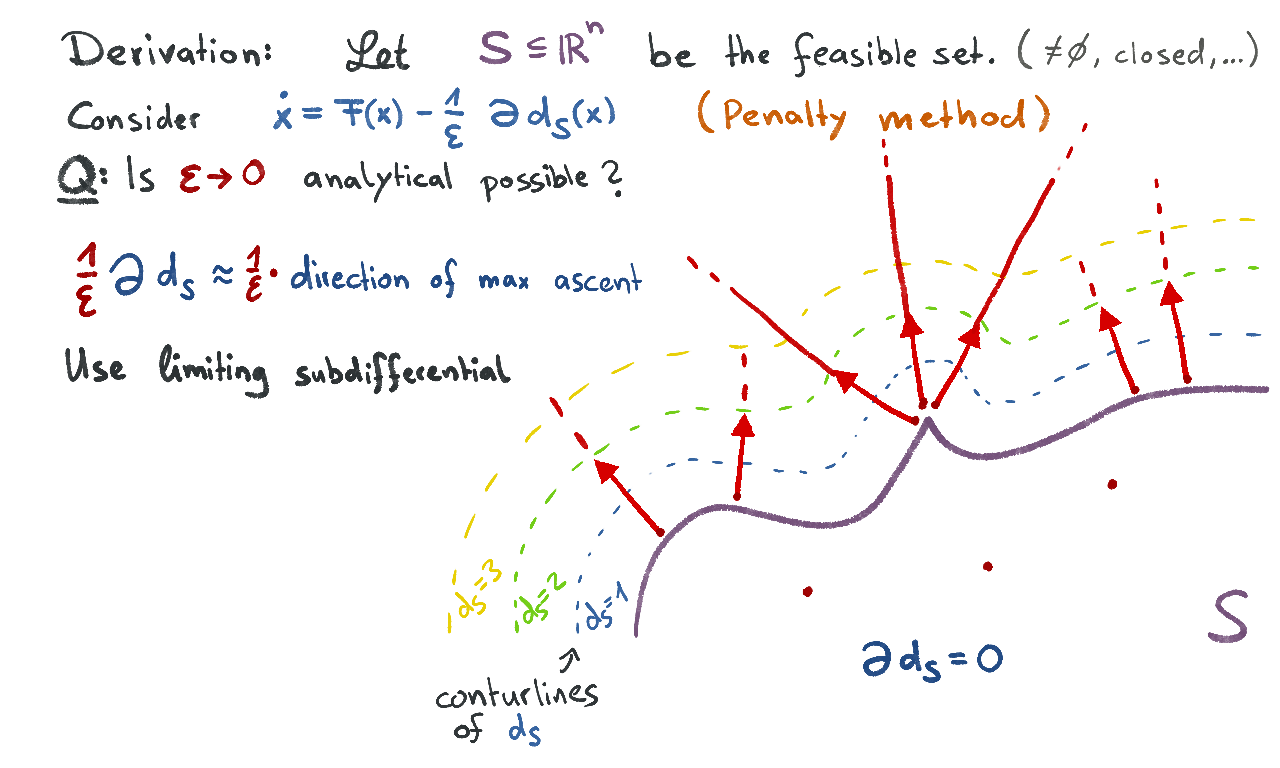 Derivation: Let S ⊆ ℝⁿ be the feasible set. (≠∅, closed,...)
Consider ẋ = F(x) - 1/ε ∂ d_S(x) (Penalty method)
Q: Is ε → 0 analytical possible?
1/ε ∂ d_S ≈ 1/ε · direction of max ascent
Use limiting subdifferential
d_S=3
d_S=2
d_S=1
S
∂ d_S = 0
conturlines
of d_S